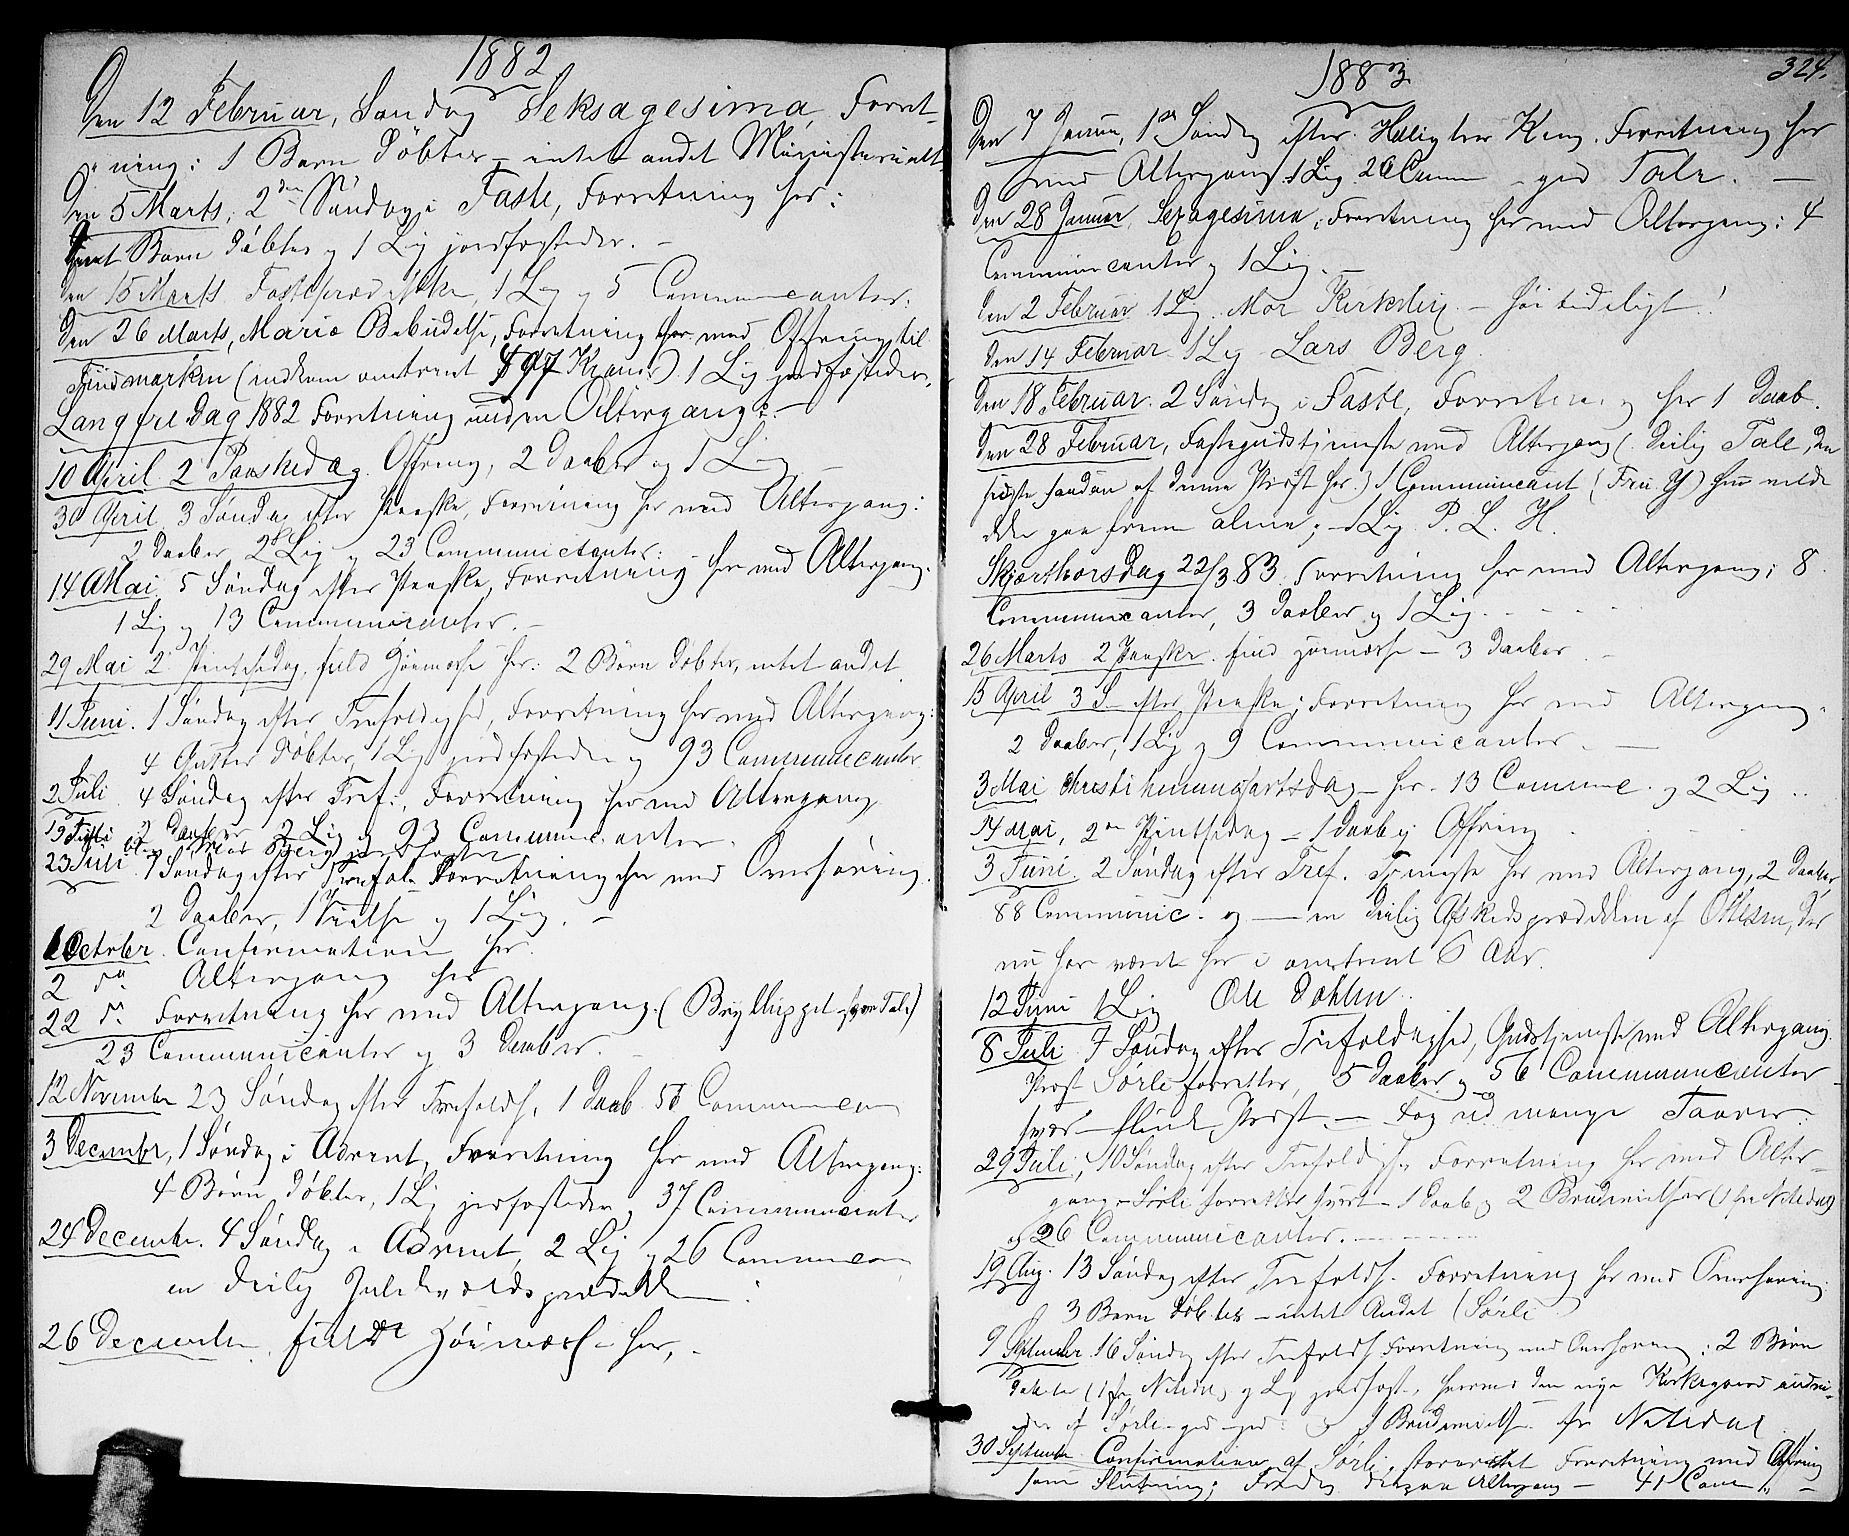 1882
Den 12 Februar, Søndag Seksagesima, Forret-
ning: 1 Barn Døbtes - intet andet Ministerielt.
Den 5 Marts, 2den Søndag i Faste, Forretning her:
Barn Døbtes og 1 Lig jordfæstedes. -
Den 15 Marts Fasteprædiken, 1 Lig og 5 Communicanter.
Den 26 Marts, Mariæ Bebudelse, Forretning her med Offring til
Finmarken (indkom omtrent 97 Kroner). 1 Lig jordfæstedes.
Langfredag 1882 Forretning uden Altergang:-
10 April 2 Paaskedag. Offring, 2 Daaber og 1 Lig -
30 April 3 Søndag efter Paaske, Forretning her med Altergang:
2 Daaber, 2 Lig og 23 Communicanter: -
14 Mai 5 Søndag efter Paaske, Forretning her med Altergang.
1 Lig og 13 Communicanter. -
29 Mai 2 Pintsedag, fuld Høimesse her: 2 Børn døbtes, intet andet.
11 Juni. 1 Søndag efter Trefoldighed, Forretning her med Altergang:
4 Døbtes, 1 Lig jordfæstedes og 93 Communicanter
2 Juli 4 Søndag efter Tref:, Forretning her med Altergang
2 Daaber 2 Lig og 23 Communicanter.
19 Juli
23 Juli 7 Søndag efter Trefol. Forretning her med Overhøring.
2 Daaber, 1 Vielse og 1 Lig. -
1 October. Confirmation her.
2 do Altergang her
22 do Forretning her med Altergang. (Brylluppet Tale)
23 Communicanter og 3 Daaber. -
12 November 23 Søndag efter Trefoldh. 1 Daab 56 Communican
3 December, 1 Søndag i Advent, Forretning her med Altergang:
4 Børn Døbtes, 1 Lig jordfæstedes, 37 Communicanter
24 December. 4 Søndag i Advent, 2 Lig og 26 Communican
en deilig Juleqvældsprædiken.
26 December. fuld Høimesse her, -
1883
324.
Den 7 Januar, 1ste Søndag efter Hellig tre Kong. Forretning her
med Altergang 1 Lig 26 Comm - god Tale. -
Den 28 Januar, Sexagesima, Forretning her med Altergang: 4
Communicanter og 1 Lig. -
Den 2 Februar 1 Lig Mor - høitideligt!
Den 14 Februar 1 Lig Lars Berg.
Den 18 Februar. 2 Søndag i Faste, Forretning her 1 Daab.
Den 28 Februar, Fastegudstjeneste med Altergang (deilig Tale, den
sidste saadan af denne Præst her.) 1 Communicant (Fru Y) hun vilde
ikke gaa frem alene; - 1 Lig P. L. H.
Skjærthorsdag 22/3 83. Forretning her med Altergang; 8
Communicanter, 3 Daaber og 1 Lig. - - - -
26 Marts 2 Paaske. fuld Høimesse - 3 Daaber. -
15 April 3 S. efter Paaske; Forretning her med Altergang.
2 Daaber, 1 Lig og 9 Communicanter. -
3 Mai Christi himmelfartsdag - her. 13 Commun. og 2 Lig ..
14 Mai, 2den Pintsedag - 1 Daab og Offring
3 Juni. 2 Søndag efter Tref. Tjeneste her med Altergang, 2 Daaber
88 Communic. og - en deilig Afskedsprædiken af Ottesen, der
nu har været her i omtrent 6 Aar.
12 Juni 1 Lig Ole Dahlen.
8 Juli 7 Søndag efter Trefoldighed, Gudstjeneste med Altergang.
Præst Sørli forretter, 5 Daaber og 56 Communicanter
svær flink Præst - tog ud mange Taarer.
29 Juli, 10 Søndag efter Trefoldigh. Forretning her med Alter-
gang - Sørli forretter - 1 Daab og 2 Brudevielser (1 fra Nitedal)
og 26 Communicanter. - - - -
19 Aug. 13 Søndag efter Trefoldh. Forretning her med Overhøring.
3 Børn Døbtes - intet Andet (Sørli
9 September 16 Søndag efter Trefoldh Forretning med Overhøring: 2 Børn
Døbte (1 fra Nitedal) og Lig jordfæst., herved den nye Kirkegaard indvi-
edes af Sørli - 1 Brudevielse fra Nitedal
30 September Confirmation af Sørli, Forretning med Offring
som Slutning; Altergang - 41 Com